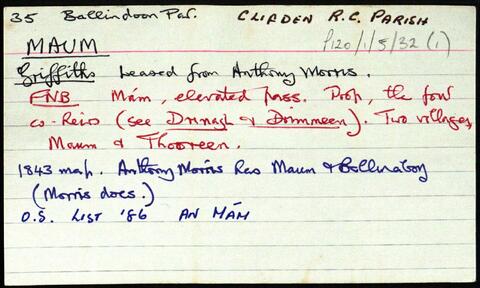 35 Ballindoon Par. CLIFDEN R.C. PARISH
P120/1/5/32 (1)
MAUM
Griffiths Leased from Anthony Morris.
FNB Mám, elevated pass. Prop, the four
co-Reiro (see Drinagh & Drimmeen). Two villages,
Maum & Thooreen.
1843 map. Anthony Morris Rev Maum & Bollinaboy
(Morris docs.)
O.S. LIST '86 AN MÁM